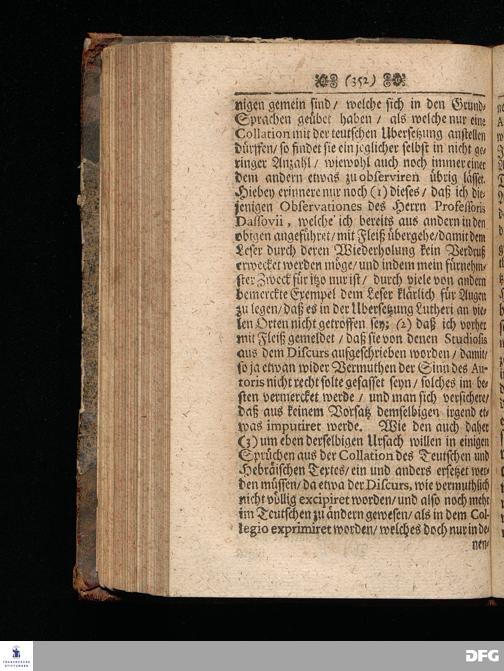 (352)
nigen gemein sind / welche sich in den Grund-
Sprachen geübet haben / als welche nur eine
Collation mit der teutschen Ubersetzung anstellen
dürffen / so findet sie ein jeglicher selbst in nicht ge-
ringer Anzahl / wiewohl auch noch immer einer
dem andern etwas zu observiren übrig lässet.
Hiebey erinnere nur noch (1) dieses / daß ich die-
jenigen Observationes des Herrn Professoris
Dassovii, welche ich bereits aus andern in den
obigen angeführet / mit Fleiß übergehe / damit dem
Leser durch deren Wiederholung kein Verdruß
erwecket werden möge / und indem mein fürnehm-
ster Zweck für itzo nur ist / durch viele von andern
bemerckte Exempel dem Leser klärlich für Augen
zu legen / daß es in der Ubersetzung Lutheri an vie-
len Orten nicht getroffen sey; (2) daß ich vorher
mit Fleiß gemeldet / daß sie von denen Studiosis
aus dem Discurs aufgeschrieben worden / damit /
so ja etwan wider Vermuthen der Sinn des Au-
toris nicht recht solte gefasset seyn / solches im be-
sten vermercket werde / und man sich versichere /
daß aus keinem Vorsatz demselbigen irgend et-
was imputiret werde. Wie den auch daher
(3) um eben derselbigen Ursach willen in einigen
Sprüchen aus der Collation des Teutschen und
Hebräischen Textes / ein und anders ersetzet wer-
den müssen / da etwa der Discurs, wie vermuthlich
nicht völlig excipiret worden / und also noch mehr
im Teutschen zu ändern gewesen / als in dem Col-
legio exprimiret worden / welches doch nur in de-
nen-
FRANCKESCHE
STIFTUNGEN
DFG